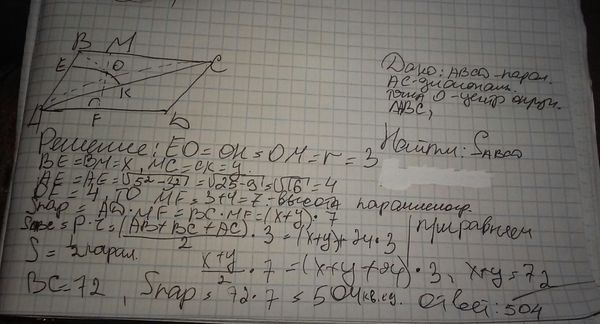 B M
E O C
K
A F D
Дано: ABCD-парал.
AC-диагонал.
точка O-центр окруж.
ΔABC,
Найти: SABCD
Решение: EO=OK=OM=r=3
BE=BM=X, MC=CK=y
AE=AE=√5²-3²=√25-9=√16=4
OF=4, ГО MF=3+4=7-высота параллелогр.
Sпар=AD·MF=BC·MF=(x+y)·7
SABC=P·r=(AB+BC+AC)/2·3=(x+y)+24·3 приравняем
S=2парал. x+y/2·7=(x+y+24)·3, x+y=72
BC=72, Sпар=72·7=504кв.ед. Ответ:504